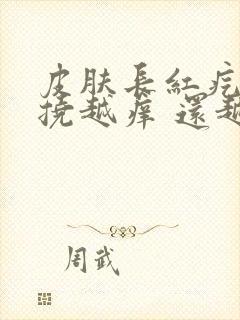 皮肤長紅疙
撓越痒 還越
周武